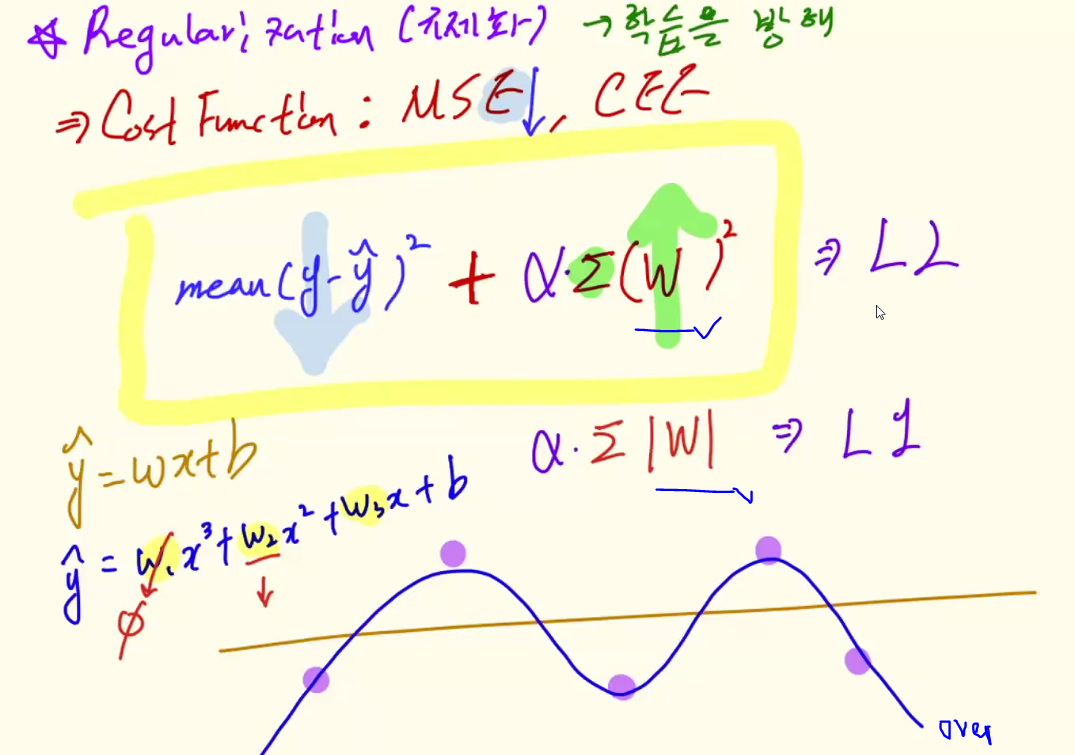 ☆ Regularization (규제화) → 학습을 방해
⇒ Cost Function : MSE↓, CEE
mean(y-ŷ)² + α·Σ(W)² ⇒ L2
α·Σ|W| ⇒ L1
ŷ = wx+b
ŷ = w₁x³+w₂x²+w₃x+b
↓
φ
over